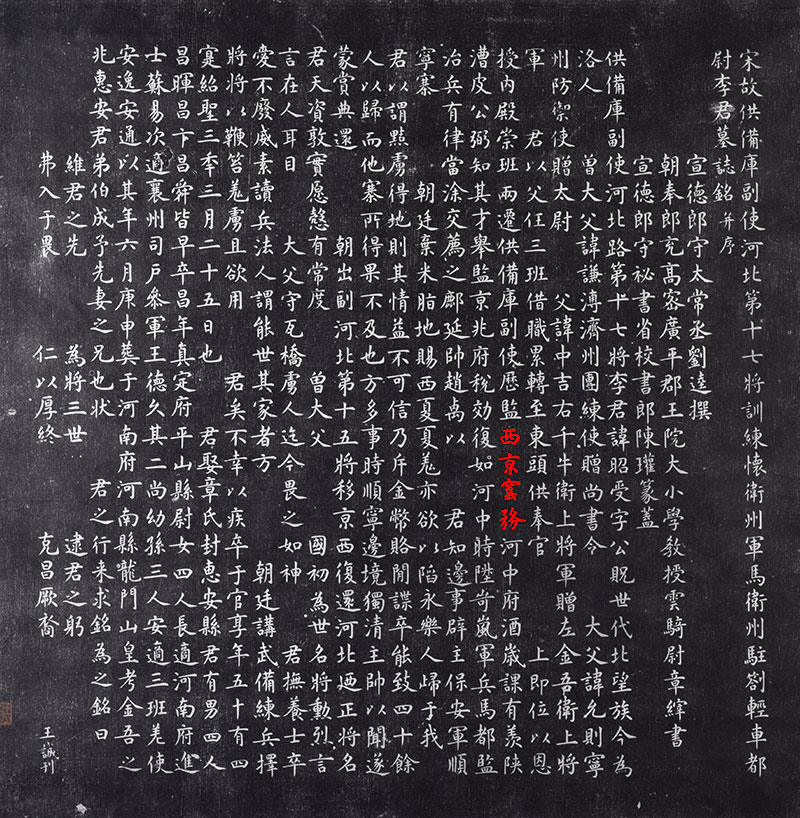 宋故供備庫副使河北第十七將訓練懷衛州軍馬衛州駐劄輕車都
尉李君墓誌銘并序
宣德郎守太常丞劉逵撰
朝奉郎充高密廣平郡王院大小學教授雲騎尉章縡書
宣德郎守祕書省校書郎陳瓘篆蓋
供備庫副使河北路第十七將李君諱昭受字公貺世代北望族今為
洛人 曾大父諱謙溥濟州團練使贈尚書令 大父諱允則寧
州防禦使贈太尉 父諱中吉右千牛衛上將軍贈左金吾衛上將
軍 君以父任三班借職累轉至東頭供奉官 上即位以恩
授內殿崇班兩遷供備庫副使歷監西京窯務河中府酒歲課有羨陝
漕皮公弼知其才舉監京兆府稅効復如河中時陞岢嵐軍兵馬都監
治兵有律當涂交薦之鄜延帥趙卨以 君知邊事辟主保安軍順
寧寨 朝廷棄米脂地賜西夏夏羌亦欲以陷永樂人歸于我
君以謂點虜得地則其情益不可信乃斥金幣賂間諜卒能致四十餘
人以歸而他寨所得果不及也方多事時順寧邊境獨清主帥以聞遂
蒙賞典還 朝出副河北第十五將移京西復還河北迺正將名
君天資敦實愿慤有常度 曾大父 國初為世名將勳烈言
言在人耳目 大父守瓦橋虜人迄今畏之如神 君撫養士卒
愛不廢威素讀兵法人謂能世其家者方 朝廷講武備練兵擇
將將以鞭笞羌虜且欲用 君矣不幸以疾卒于官享年五十有四
寔紹聖三年三月二十五日也 君娶章氏封惠安縣君有男四人
昌暉昌卞昌舜皆早卒昌年真定府平山縣尉女四人長適河南府進
士蘇易次適襄州司戶叅軍王德久其二尚幼孫三人安適三班差使
安逸安通以其年六月庚申葬于河南府河南縣龍門山皇考金吾之
兆惠安君弟伯成予先妻之兄也狀 君之行来求銘為之銘曰
維君之先 為將三世 逮君之躬
弗入于畏 仁以厚終 克昌厥裔 王誠刊